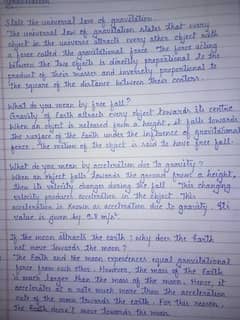 Gravitation
State the universal law of gravitation
The universal law of gravitation states that every
object in the universe attracts every other object with
a force called the gravitational force. The force acting
between the two objects is directly proportional to the
product of their masses and inversely proportional to
the square of the distance between their centres.
What do you mean by free fall?
Gravity of Earth attracts every object towards its centre.
When an object is released from a height, it falls towards
the surface of the Earth under the influence of gravitational
force. The motion of the object is said to have free fall.
What do you mean by acceleration due to gravity?
When an object falls towards the ground from a height,
then its velocity changes during the fall. This changing
velocity produces acceleration in the object. This
acceleration is known as acceleration due to gravity. Its
value is given by 9.8 m/s².
If the moon attracts the earth, why does the Earth
not move towards the moon?
The Earth and the moon experiences equal gravitational
force from each other. However, the mass of the Earth
is much larger than the mass of the moon. Hence, it
accelerates at a rate much more than the acceleration
rate of the moon towards the earth. For this reason,
the Earth doesn't move towards the moon.